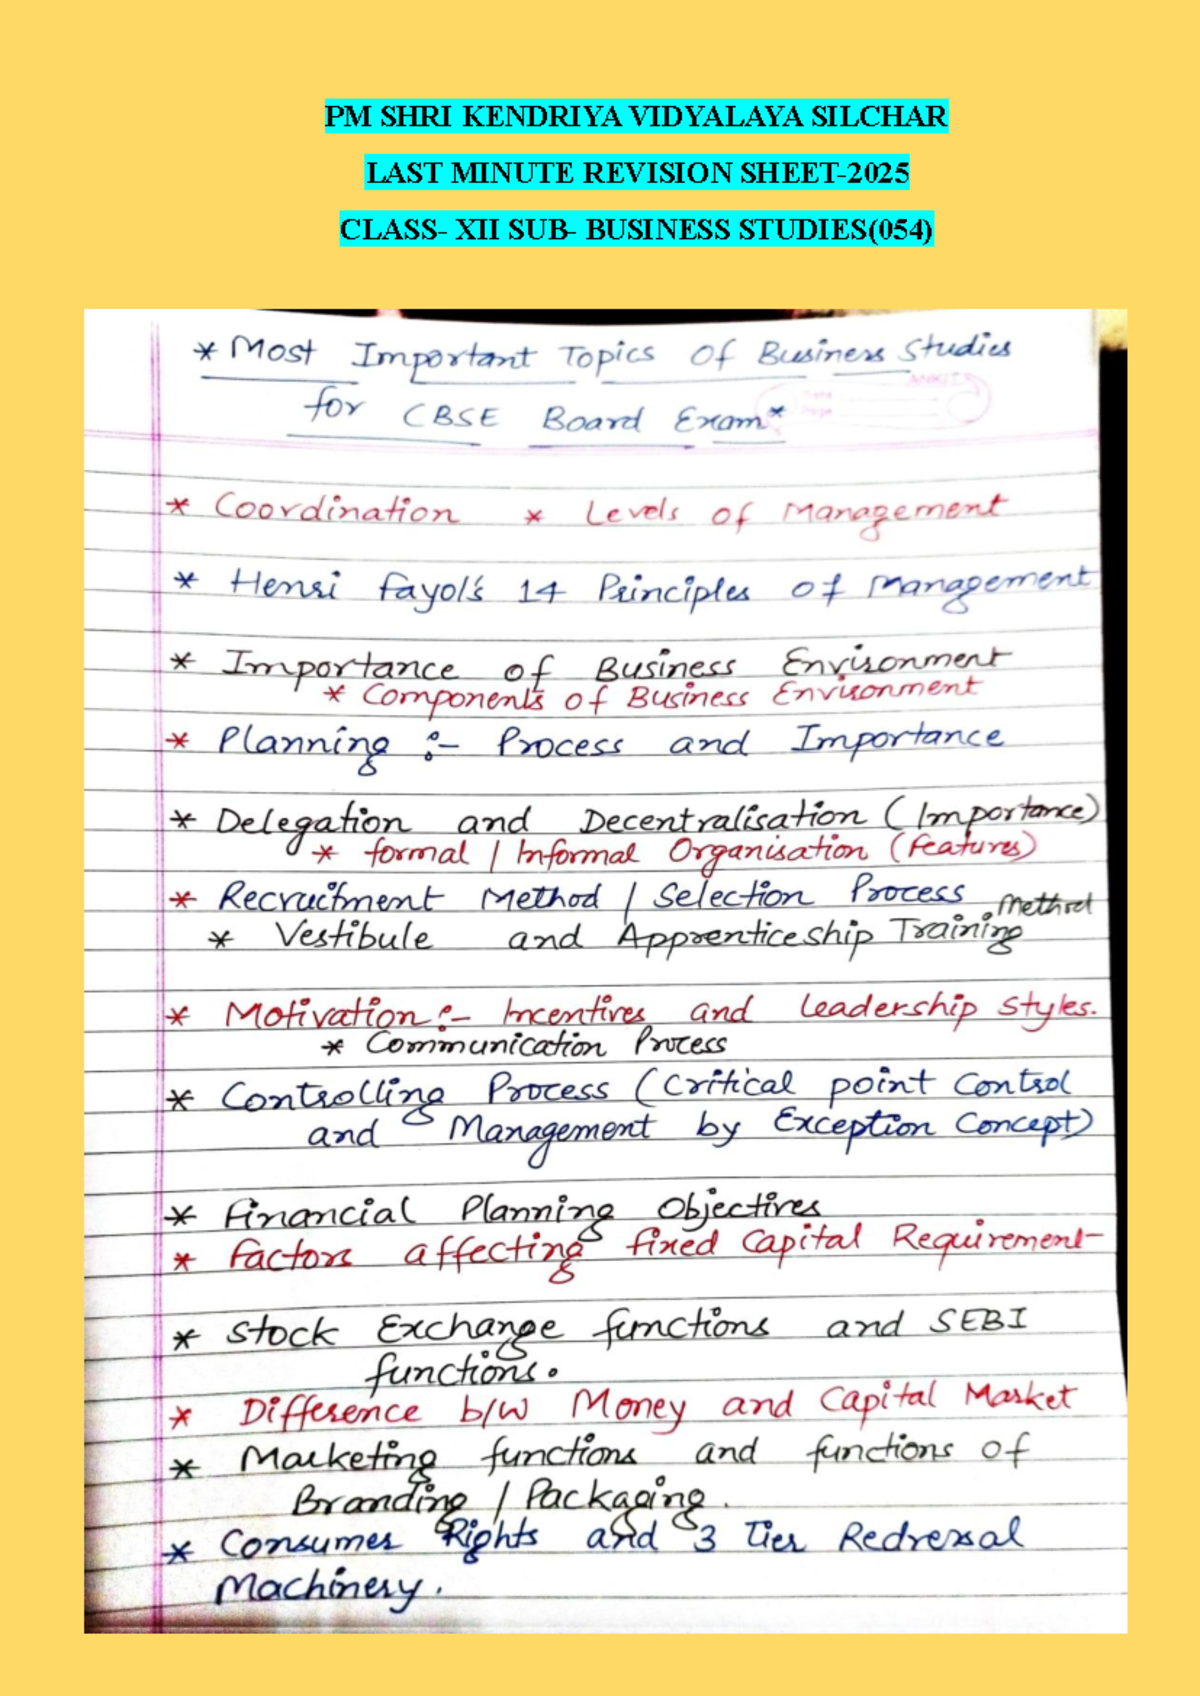 PM SHRI KENDRIYA VIDYALAYA SILCHAR
LAST MINUTE REVISION SHEET-2025
CLASS- XII SUB- BUSINESS STUDIES(054)
* Most Important Topics Of Business Studies
for CBSE Board Exam *
* Coordination * Levels of Management
* Henri Fayol's 14 Principles of Management
* Importance of Business Environment
* Components of Business Environment
* Planning :- Process and Importance
* Delegation and Decentralisation (Importance)
* formal / Informal Organisation (features)
* Recruitment Method / Selection Process
* Vestibule and Apprenticeship Training Method
* Motivation :- Incentives and Leadership Styles.
* Communication Process
* Controlling Process (Critical point Control
and Management by Exception Concept)
* Financial Planning Objectives
* Factors affecting fixed Capital Requirement
* Stock Exchange functions and SEBI
functions.
* Difference b/w Money and Capital Market
* Marketing functions and functions of
Branding / Packaging.
* Consumer Rights and 3 Tier Redressal
Machinery.